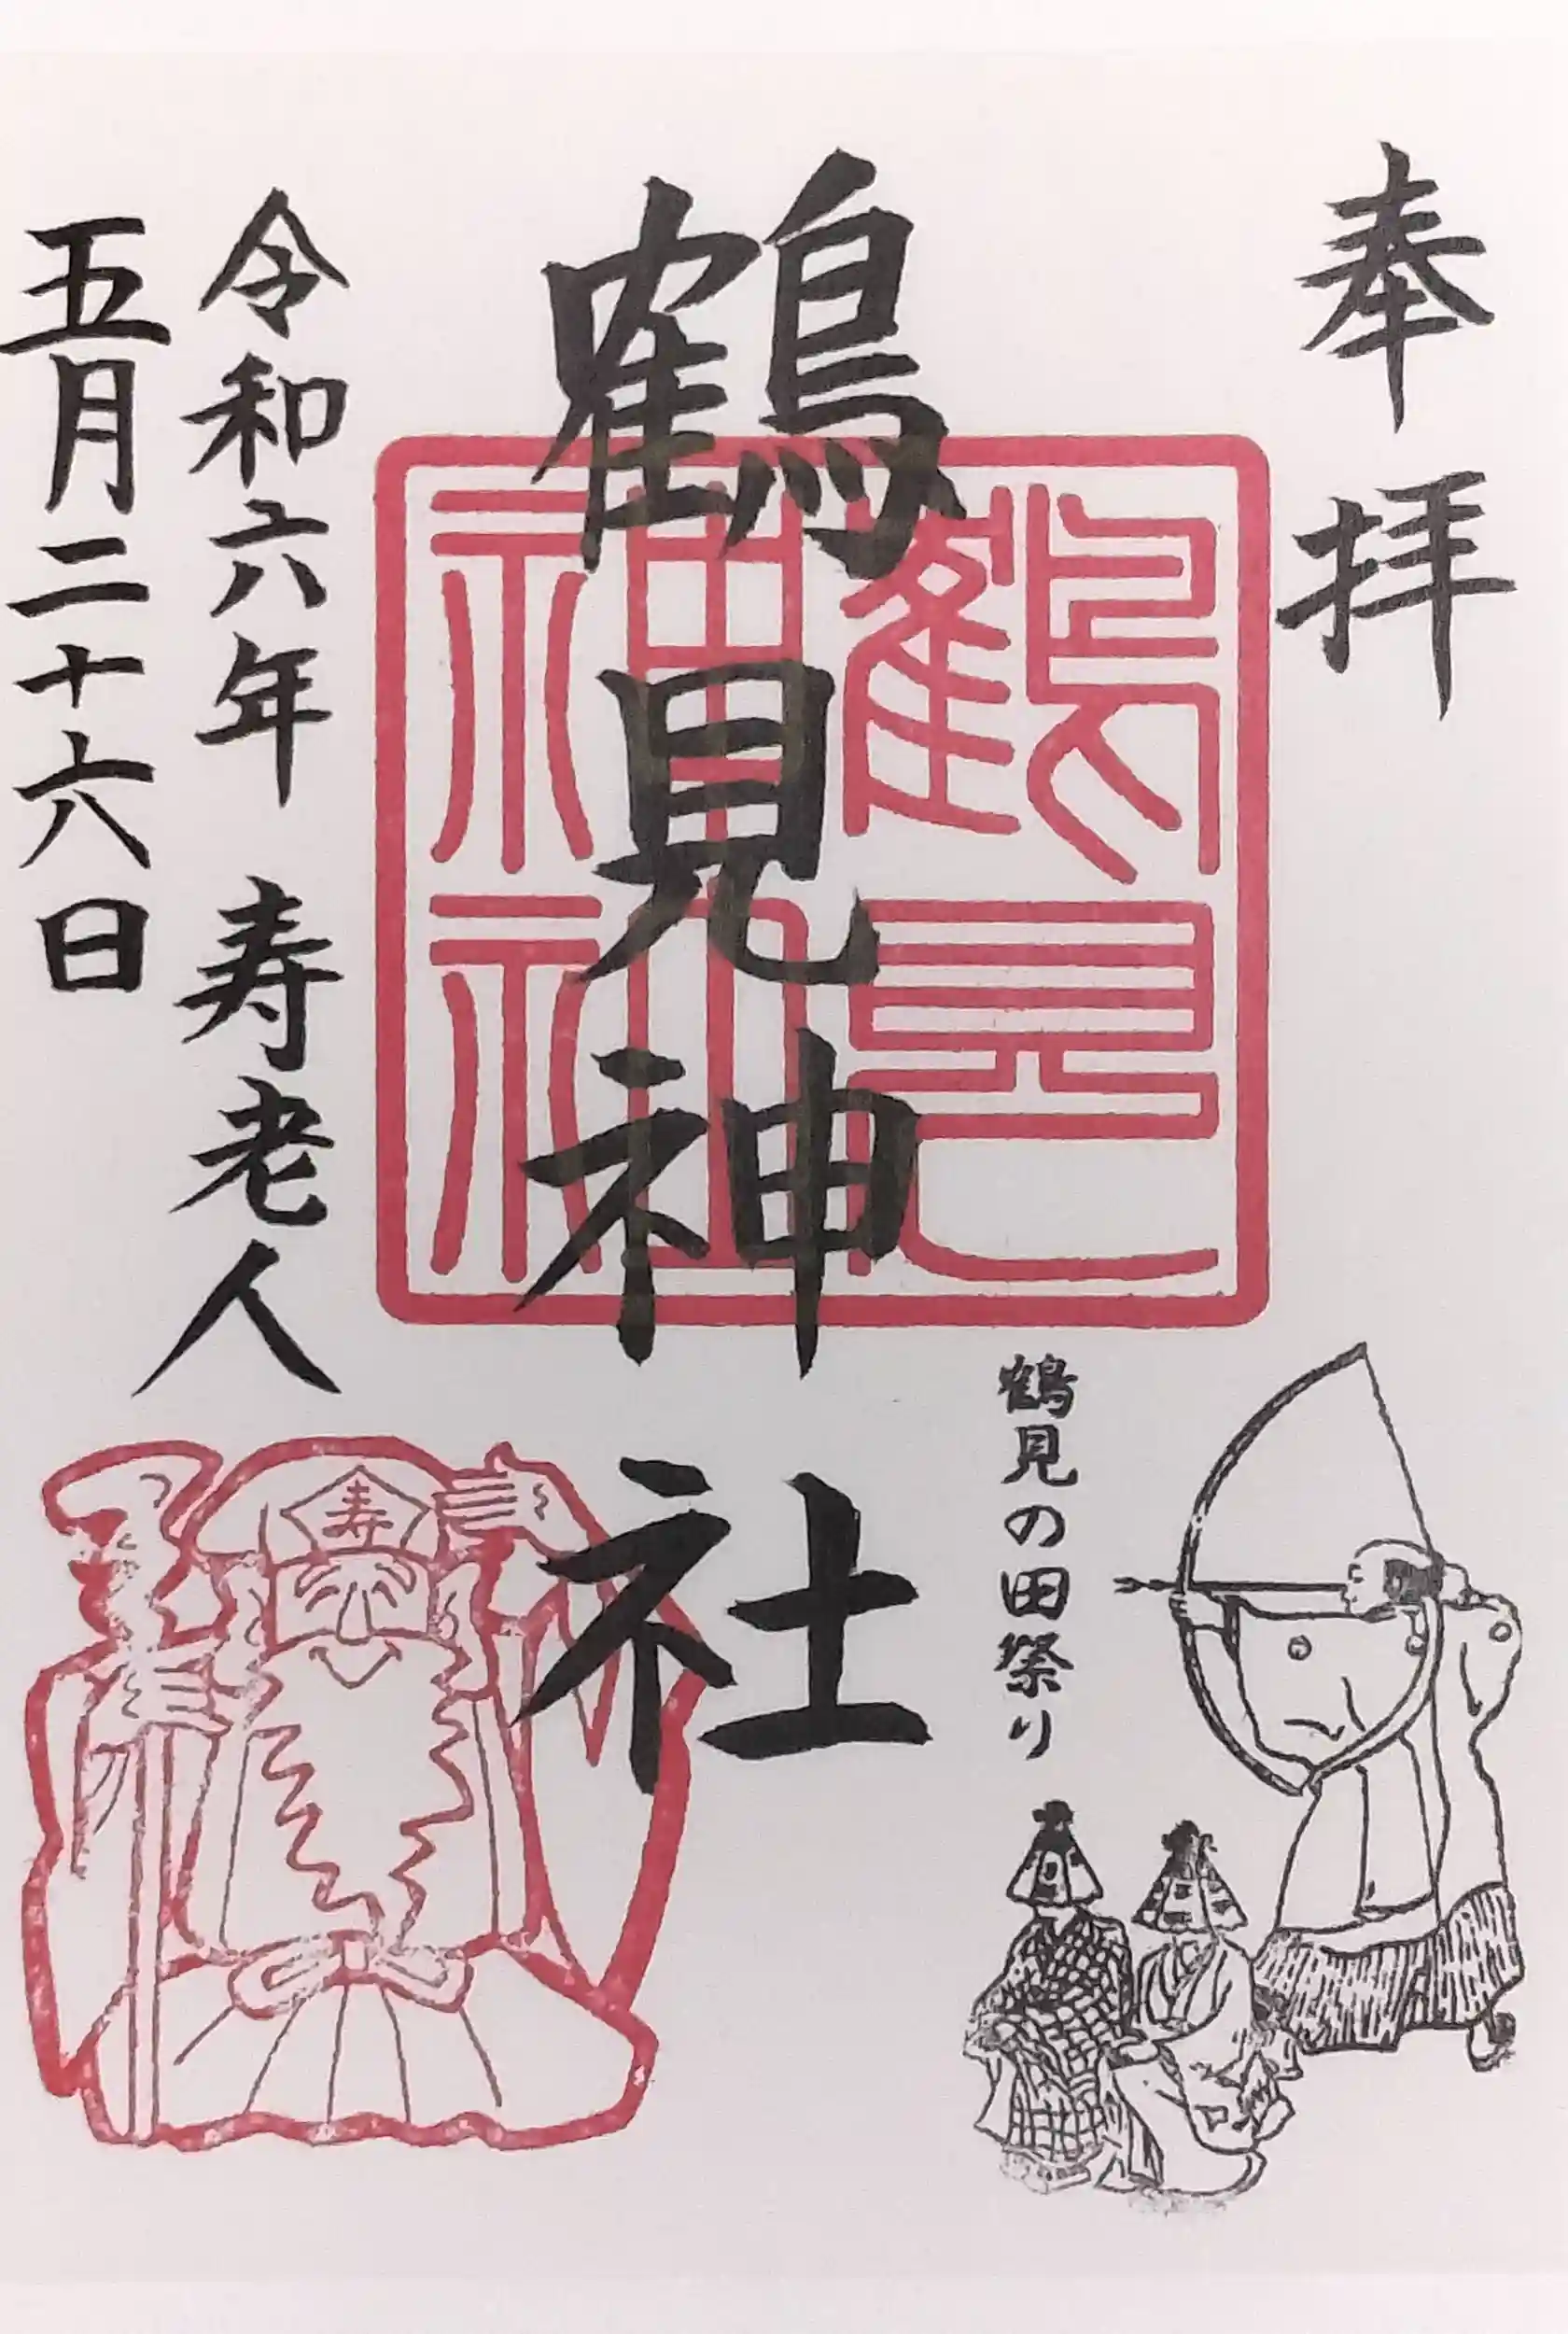 奉拝
鶴見神社
鶴見
神社
鶴見の田祭り
令和六年 寿老人
五月二十六日
寿